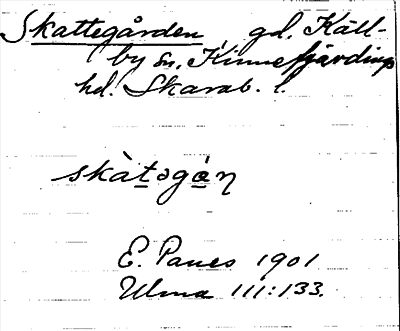 Skattegården gd. Käll-
by sn, Kinnefjärdings
hd. Skarab. l.
skàt̲əgǻ̲ɳ
E. Panes 1901
Ulma 111:133.